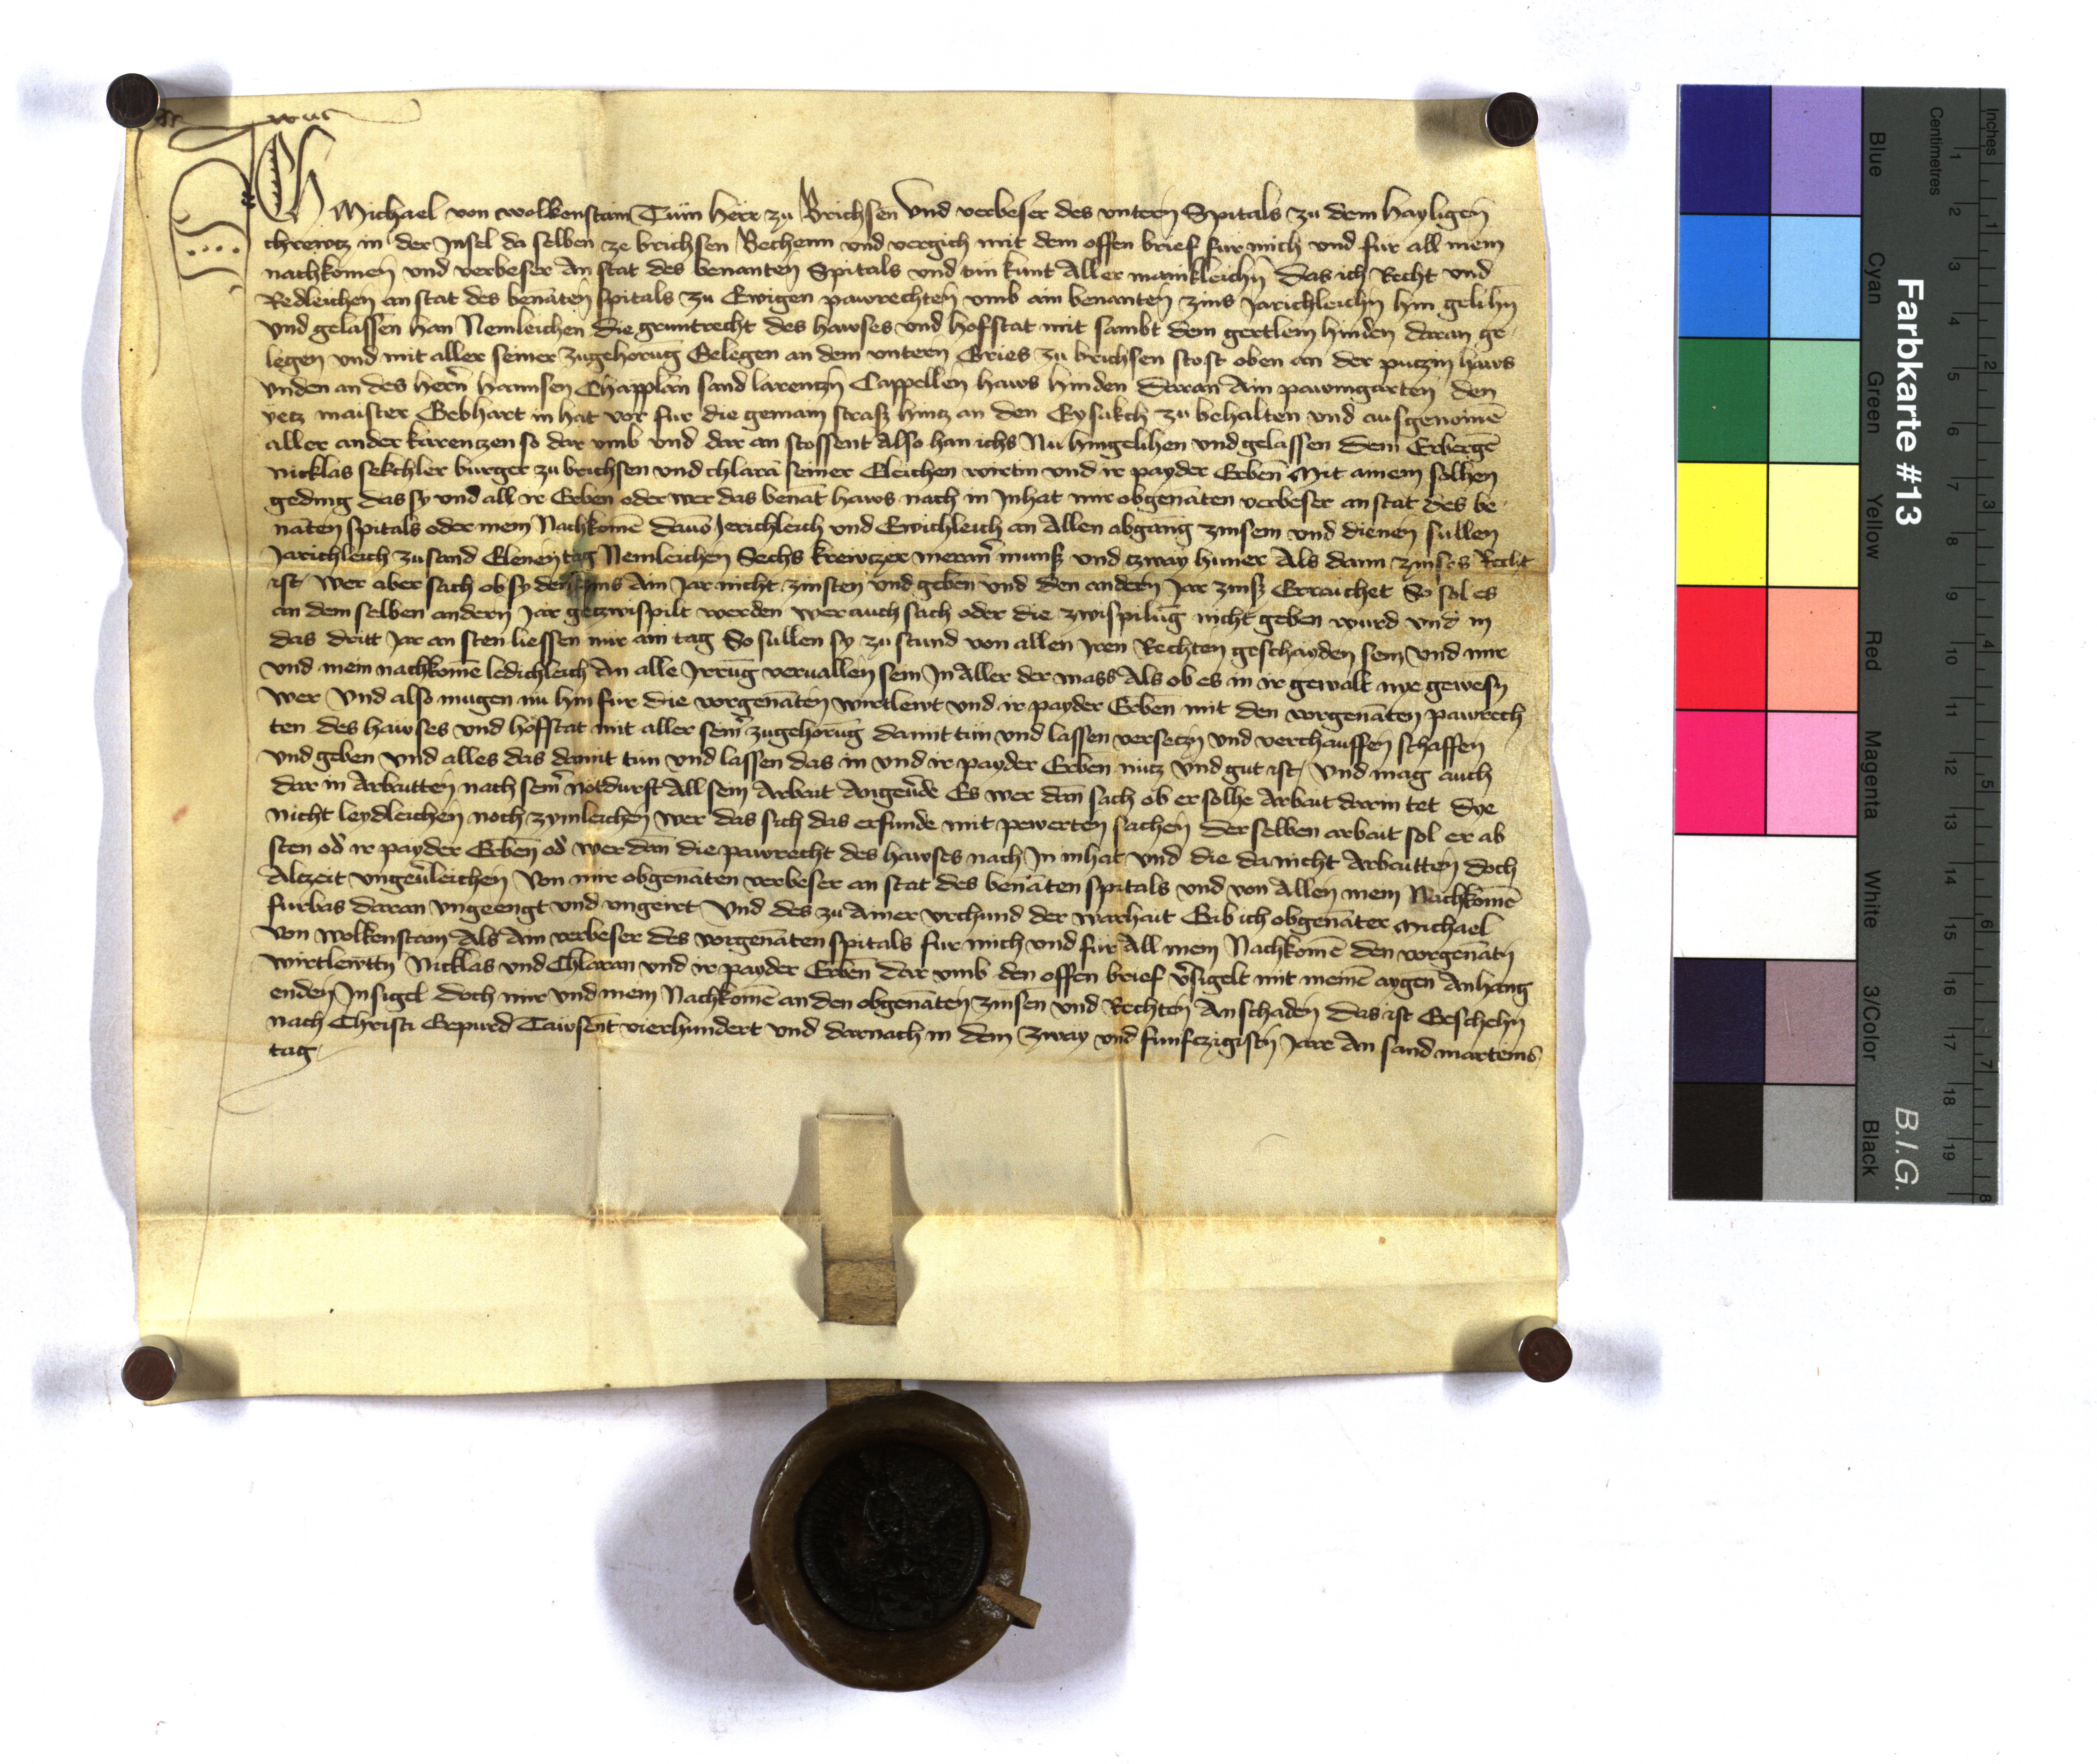 Ich Michael von wolkenstain Tům herr zu Brichsen Vnd verbeser des vntern Spitals zu dem hayligen
chrewtz in der Jnsel da selben ze brichsen Bechenn vnd vergich mit dem offen brief fur mich vnd fur all mein
nachkomen vnd verbeser An stat des benanten Spitals vnd tun kunt Aller mainkleichn Das ich Recht vnd
Redleichen an stat des benāten spitals zu Ewigen pawrechten vmb ain benanten zins Jarichleichn hin gelihn
Vnd gelassen han Nemleichen die gruntrecht des hawses vnd hofstat mit sambt dem gertlein hinden daran ge
legen vnd mit aller seiner zugehorūg Gelegen an dem vntern Gries zu brichsen stost oben an der putzin haws
vnden an des herñ hannsen Chapplan sand larentzn Cappellen haws hinden daran Ain pawmgarten den
yetz maister Gebhart in hat vor fur die gemain strasz hintz an den Eysakch zu behalten vnd ausgenomē
aller ander karentzen so dar vmb vnd dar an stossent Also han ichs Nu hingelihen vnd gelassen dem Erberge
Nicklas sekchler burger zu brichsen vnd chlara seiner Eleichen wirtin vnd ir payder Erben Mit ainem solhen
geding das sy vnd all ir Erben oder wer das benāt haws nach in Jnhat mir obgenāten verbeser an stat des be
nāten spitals oder mein Nachkomē dauō Jerichleich vnd Ewichleich an Allen abgang zinsem vnd dienen sullen
Jarichleich zu sand Elenen tag Nemleichen Sechs krewczer meranr munsz vnd tzway huner Als dann zinses Recht
ist/ Wer aber sach ob sy den zins Ain Jar nicht zinsten vnd geben vnd den andern Jar zinsz Erraichet So sol es
an dem selben andern Jar getzwispilt werden wer auch sach oder die zwispilūg nicht geben wurd vnd in
das dritt Jar an sten liessen nur ain tag So sullen sy zu stund von allen Jren Rechten geschayden sein Vnd mir
vnd mein nachkomē ledichleich An alle Jrrūg veruallen sein Jn Aller der mass Als ob es in ir gewalt nye gewesn
wer Vnd also mugen nu hin fur die vorgenāten wirtlewt vnd ir payder Erben mit den vorgenāten pawrech
ten des hawses vnd hofstat mit aller seinr zugehorūg damit tun vnd lassen versetzn vnd verchauffen schaffen
vnd geben vnd alles das damit tun vnd lassen das in vnd ir payder Erben nutz vnd gut ist/ Vnd mag auch
dar in Arbaitten nach seinr notdurft All sein Arbait Angeu̔de Es wer dan sach ob er solhe Arbait darin tet Dye
nicht leydleichen noch zymleichen wer das sich das erfunde mit pewerten sachen Der selben arbait sol er ab
sten od̔ ir payder Erben od̔ wer dan die pawrecht des hawses nach Jn inhat vnd die da nicht Arbaitten doch
Alczeit vngeu̔leichen Von mir obgenāten verbeser an stat des benāten spitals vnd von Allen mein Nachkomē
furbas daran vngeengt vnd vngeirt Vnd des zu Ainer vrchund der warhait Gib ich obgenāter Michael
von Wolkenstain Als Ain verbeser des vorgenāten spitals fur mich vnd fur All mein Nachkomē den vorgenātn
wirtlewttn Nicklas vnd Chlaran vnd ir payder Erben dar vmb den offen brief v̔sigelt mit meinē aygen Anhang
enden Jnsigel doch mir vnd mein Nachkomē an den obgenāten zinsen vnd Rechten An schaden Das ist Geschehn
nach Christi Gepurd Tawsent vierhundert vnd darnach in dem zway vnd funfczigistn Jare An sand marteins
tag
Farbkarte #13
B.I.G.
Blue
Cyan
Green
Yellow
Red
Magenta
White
3/Color
Black
Centimetres
1 2 3 4 5 6 7 8 9 10 11 12 13 14 15 16 17 18 19
Inches
1 2 3 4 5 6 7 8